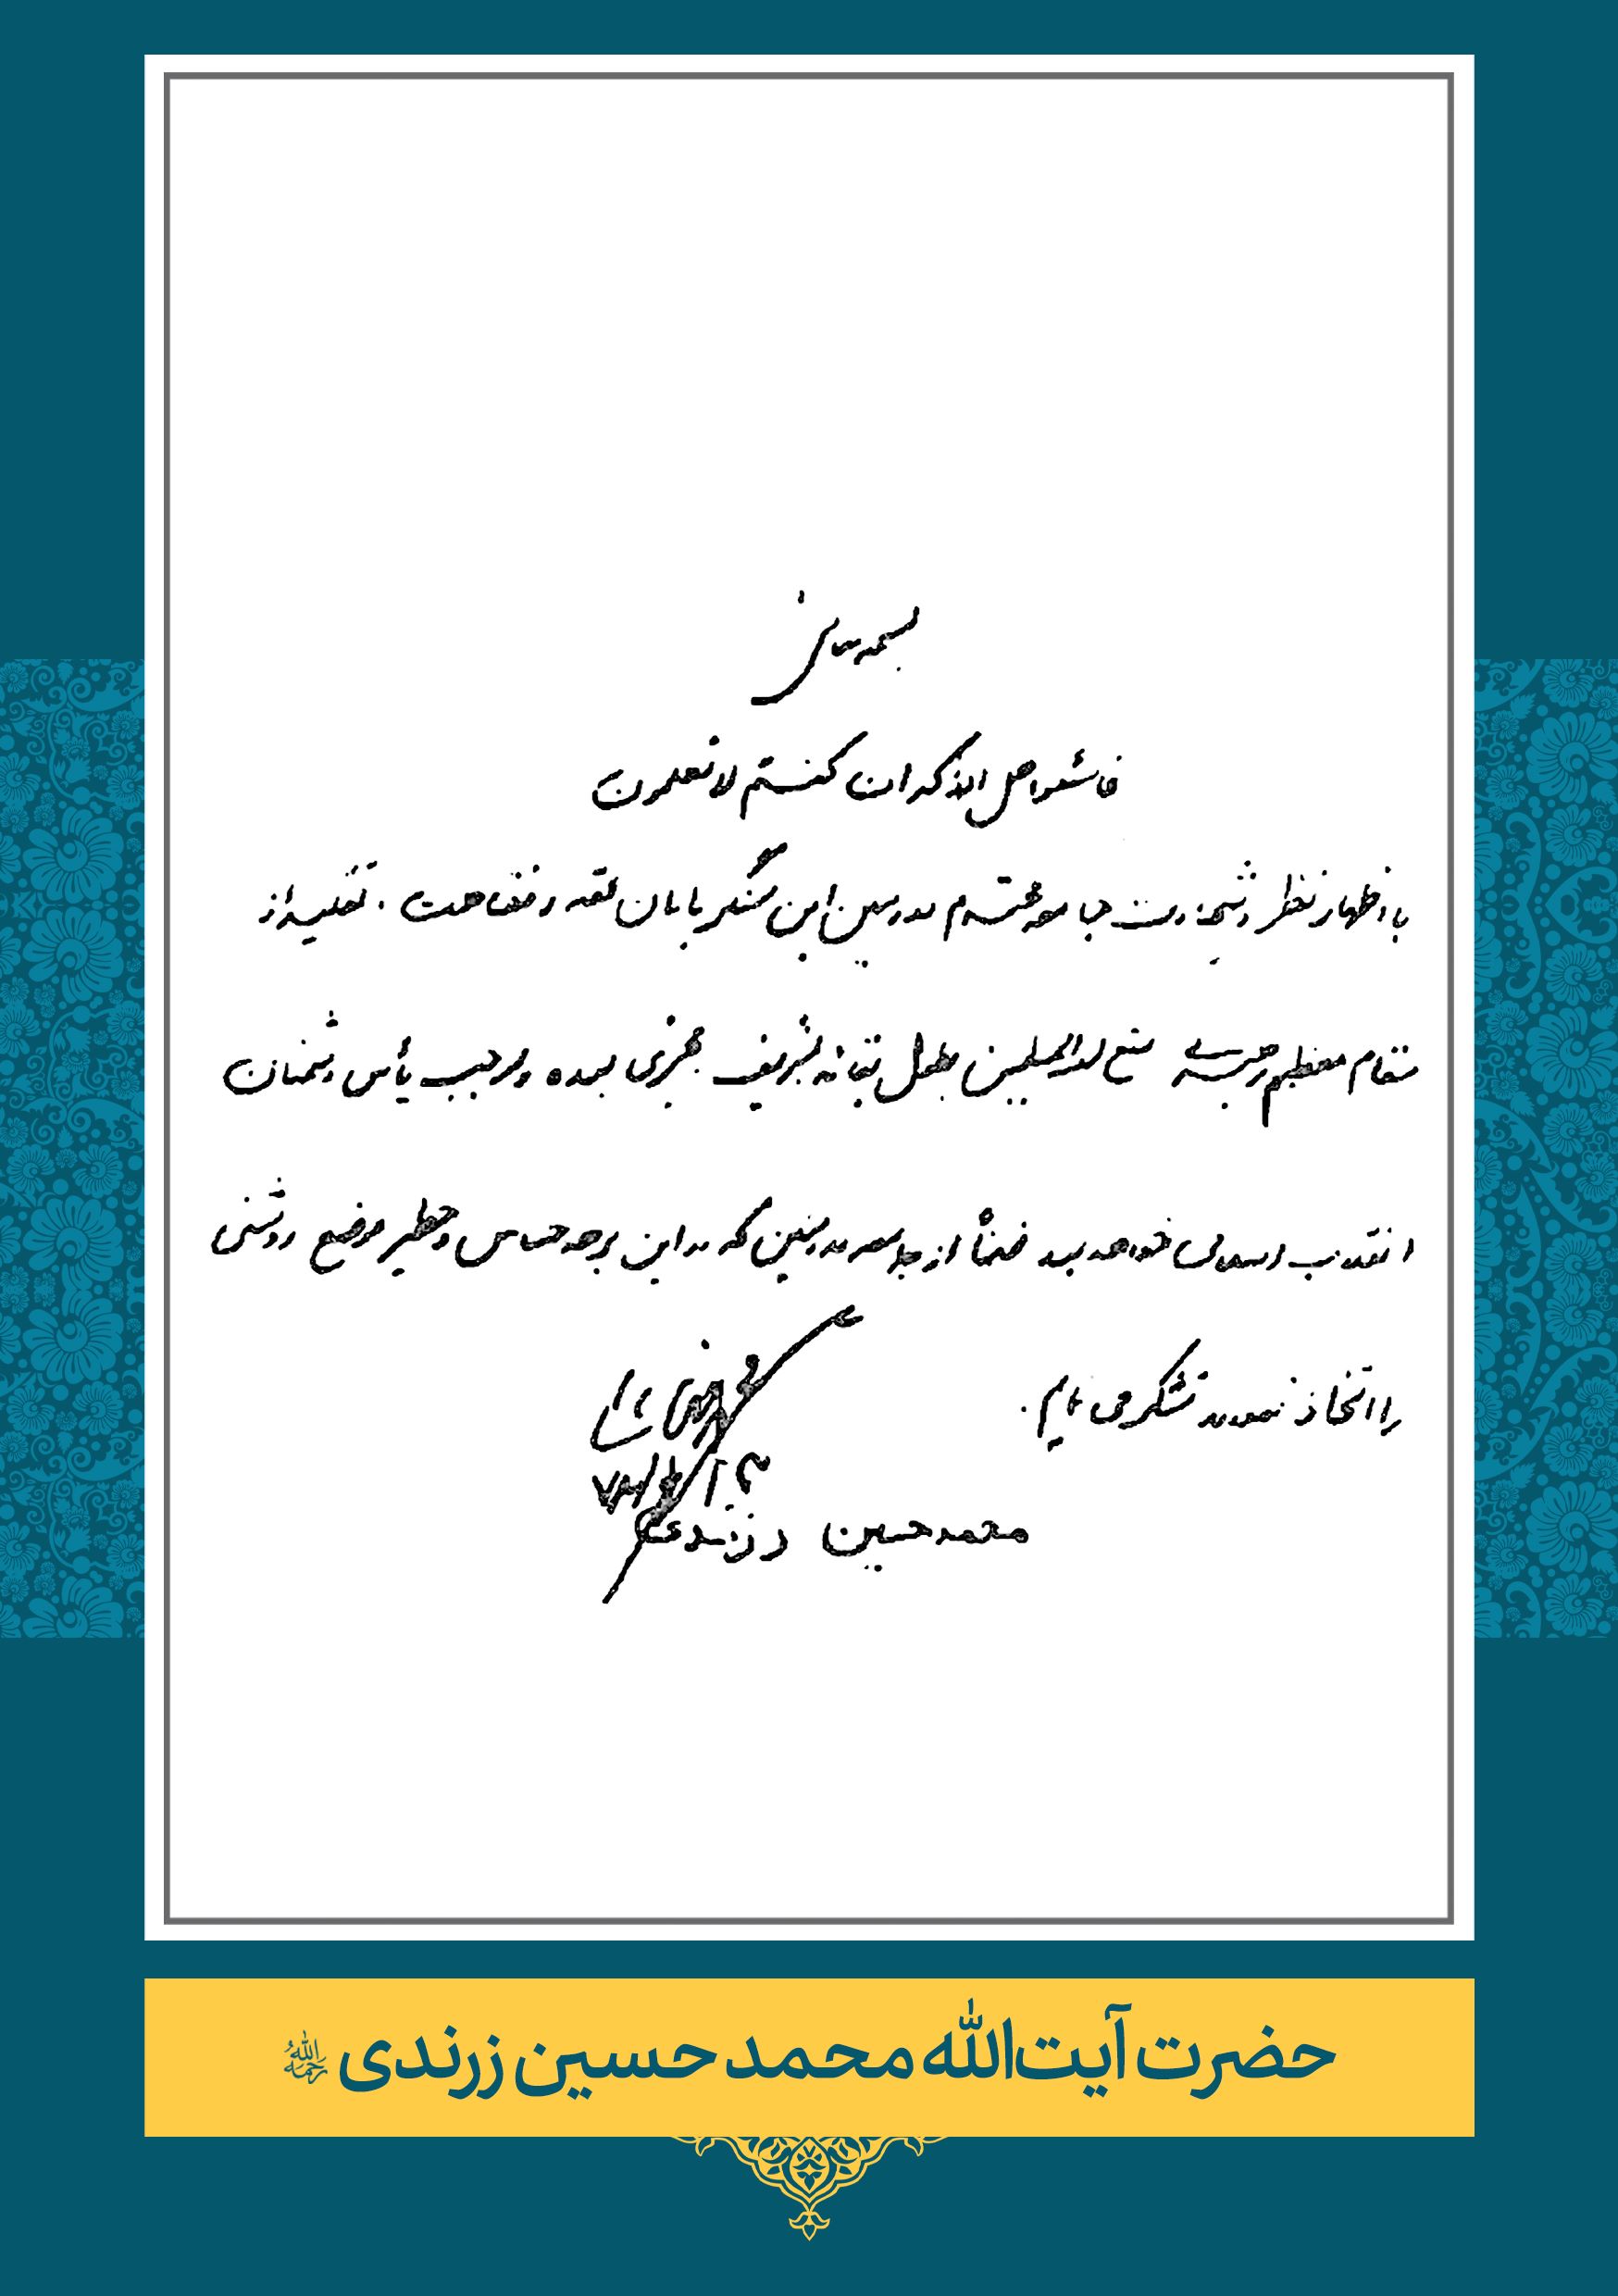 بسمه تعالی
فاسئلوا اهل الذکر ان کنتم لا تعلمون
با اظهار نظر و تشخیص جامعه محترم مدرسین این سنگربانان فقه و فقاهت . تقلید از
مقام معظم رهبری متع الله المسلمین بطول بقائه الشریف مجزی بوده و موجب یأس دشمنان
انقلاب اسلامی خواهد بود ضمناً از جامعه مدرسین که در این برهه حساس و خطیر موضع روشنی
را اتخاذ نمودند تشکر می نمایم .
محمد حسین زرندی
حضرت آیت‌الله محمد حسین زرندی رحمه الله